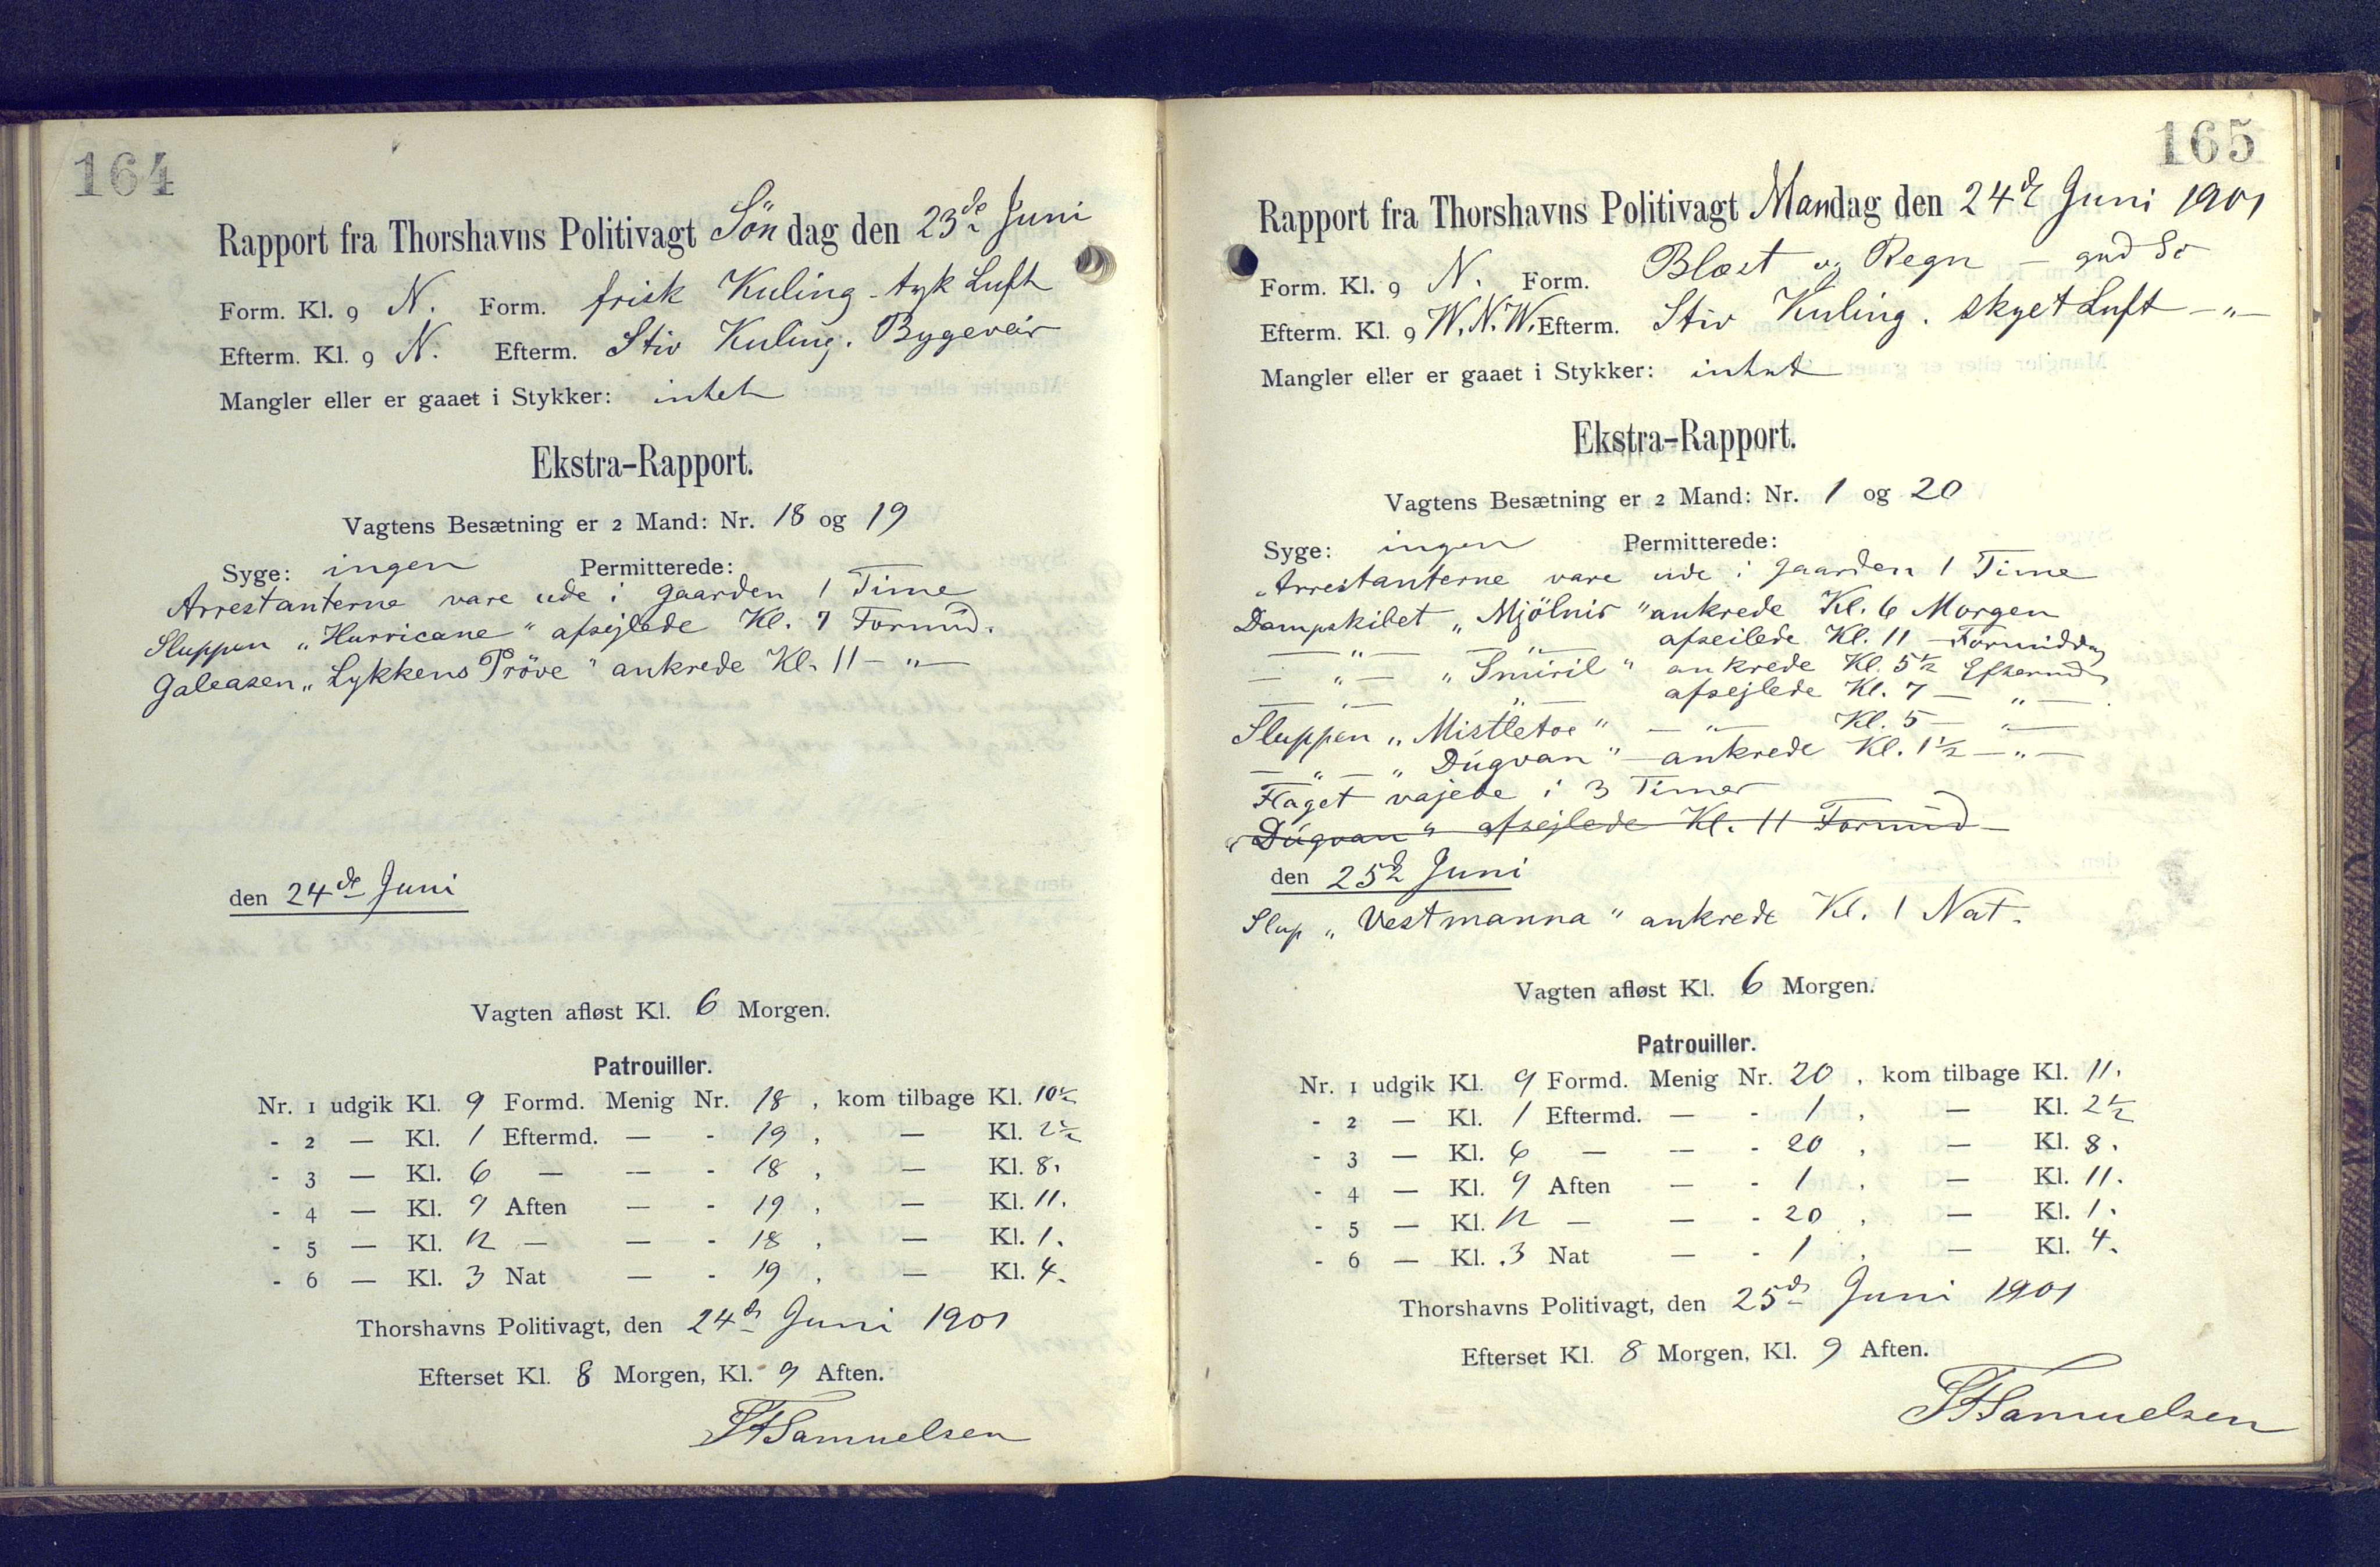 164
Rapport fra Thorshavns Politivagt Søndag den 23de Juni
Form. Kl. 9 N. Form. frisk Kuling - tyk Luft
Efterm. Kl. 9 N. Efterm. Stiv Kuling. Bygeveir
Mangler eller er gaaet i Stykker: intet
Ekstra-Rapport.
Vagtens Besætning er 2 Mand: Nr. 18 og 19
Syge: ingen Permitterede:
Arrestanterne vare ude i Gaarden 1 Time
Sluppen „Hurricane“ afsejlede Kl. 7 Formd.
Galeasen „Lykkens Pröve“ ankrede Kl. 11 — „ —
den 24de Juni
Vagten afløst Kl. 6 Morgen.
Patrouiller.
Nr. 1 udgik Kl. 9 Formd. Menig Nr. 18, kom tilbage Kl. 10½
- 2 — Kl. 1 Eftermd. — - 19, — Kl. 2½
- 3 — Kl. 6 — — - 18, — Kl. 8.
- 4 — Kl. 9 Aften — - 19, — Kl. 11.
- 5 — Kl. 12 — — - 18, — Kl. 1.
- 6 — Kl. 3 Nat — - 19, — Kl. 4.
Thorshavns Politivagt, den 24de Juni 1901
Efterset Kl. 8 Morgen, Kl. 9 Aften.
Samuelsen
165
Rapport fra Thorshavns Politivagt Mandag den 24de Juni 1901
Form. Kl. 9 N. Form. Blæst og Regn —
Efterm. Kl. 9 W.N.W. Efterm. Stiv Kuling. skyet Luft — „ —
Mangler eller er gaaet i Stykker: intet
Ekstra-Rapport.
Vagtens Besætning er 2 Mand: Nr. 1 og 20
Syge: ingen Permitterede:
Arrestanterne vare ude i Gaarden 1 Time
Dampskibet „Mjölnir“ ankrede Kl. 6 Morgen
— „ — — „ — afseilede Kl. 11 — Formiddag
— „ — „Smiril“ ankrede Kl. 5½ Eftermd
— „ — — „ — afsejlede Kl. 7 — „ — .
Sluppen „Mistletoe“ — „ — Kl. 5 — „ —
— „ — „Dúgvan“ — ankrede Kl. 1½ — „ —
Flaget vajede i 3 Timer
„Dúgvan“ afsejlede Kl. 11 Formd —
den 25de Juni
Slup „Vestmanna“ ankrede Kl. 1 Nat.
Vagten afløst Kl. 6 Morgen.
Patrouiller.
Nr. 1 udgik Kl. 9 Formd. Menig Nr. 20, kom tilbage Kl. 11.
- 2 — Kl. 1 Eftermd. — - 1, — Kl. 2½
- 3 — Kl. 6 — — - 20, — Kl. 8.
- 4 — Kl. 9 Aften — - 1, — Kl. 11.
- 5 — Kl. 12 — — - 20, — Kl. 1.
- 6 — Kl. 3 Nat — - 1, — Kl. 4.
Thorshavns Politivagt, den 25de Juni 1901
Efterset Kl. 8 Morgen, Kl. 9 Aften.
Samuelsen